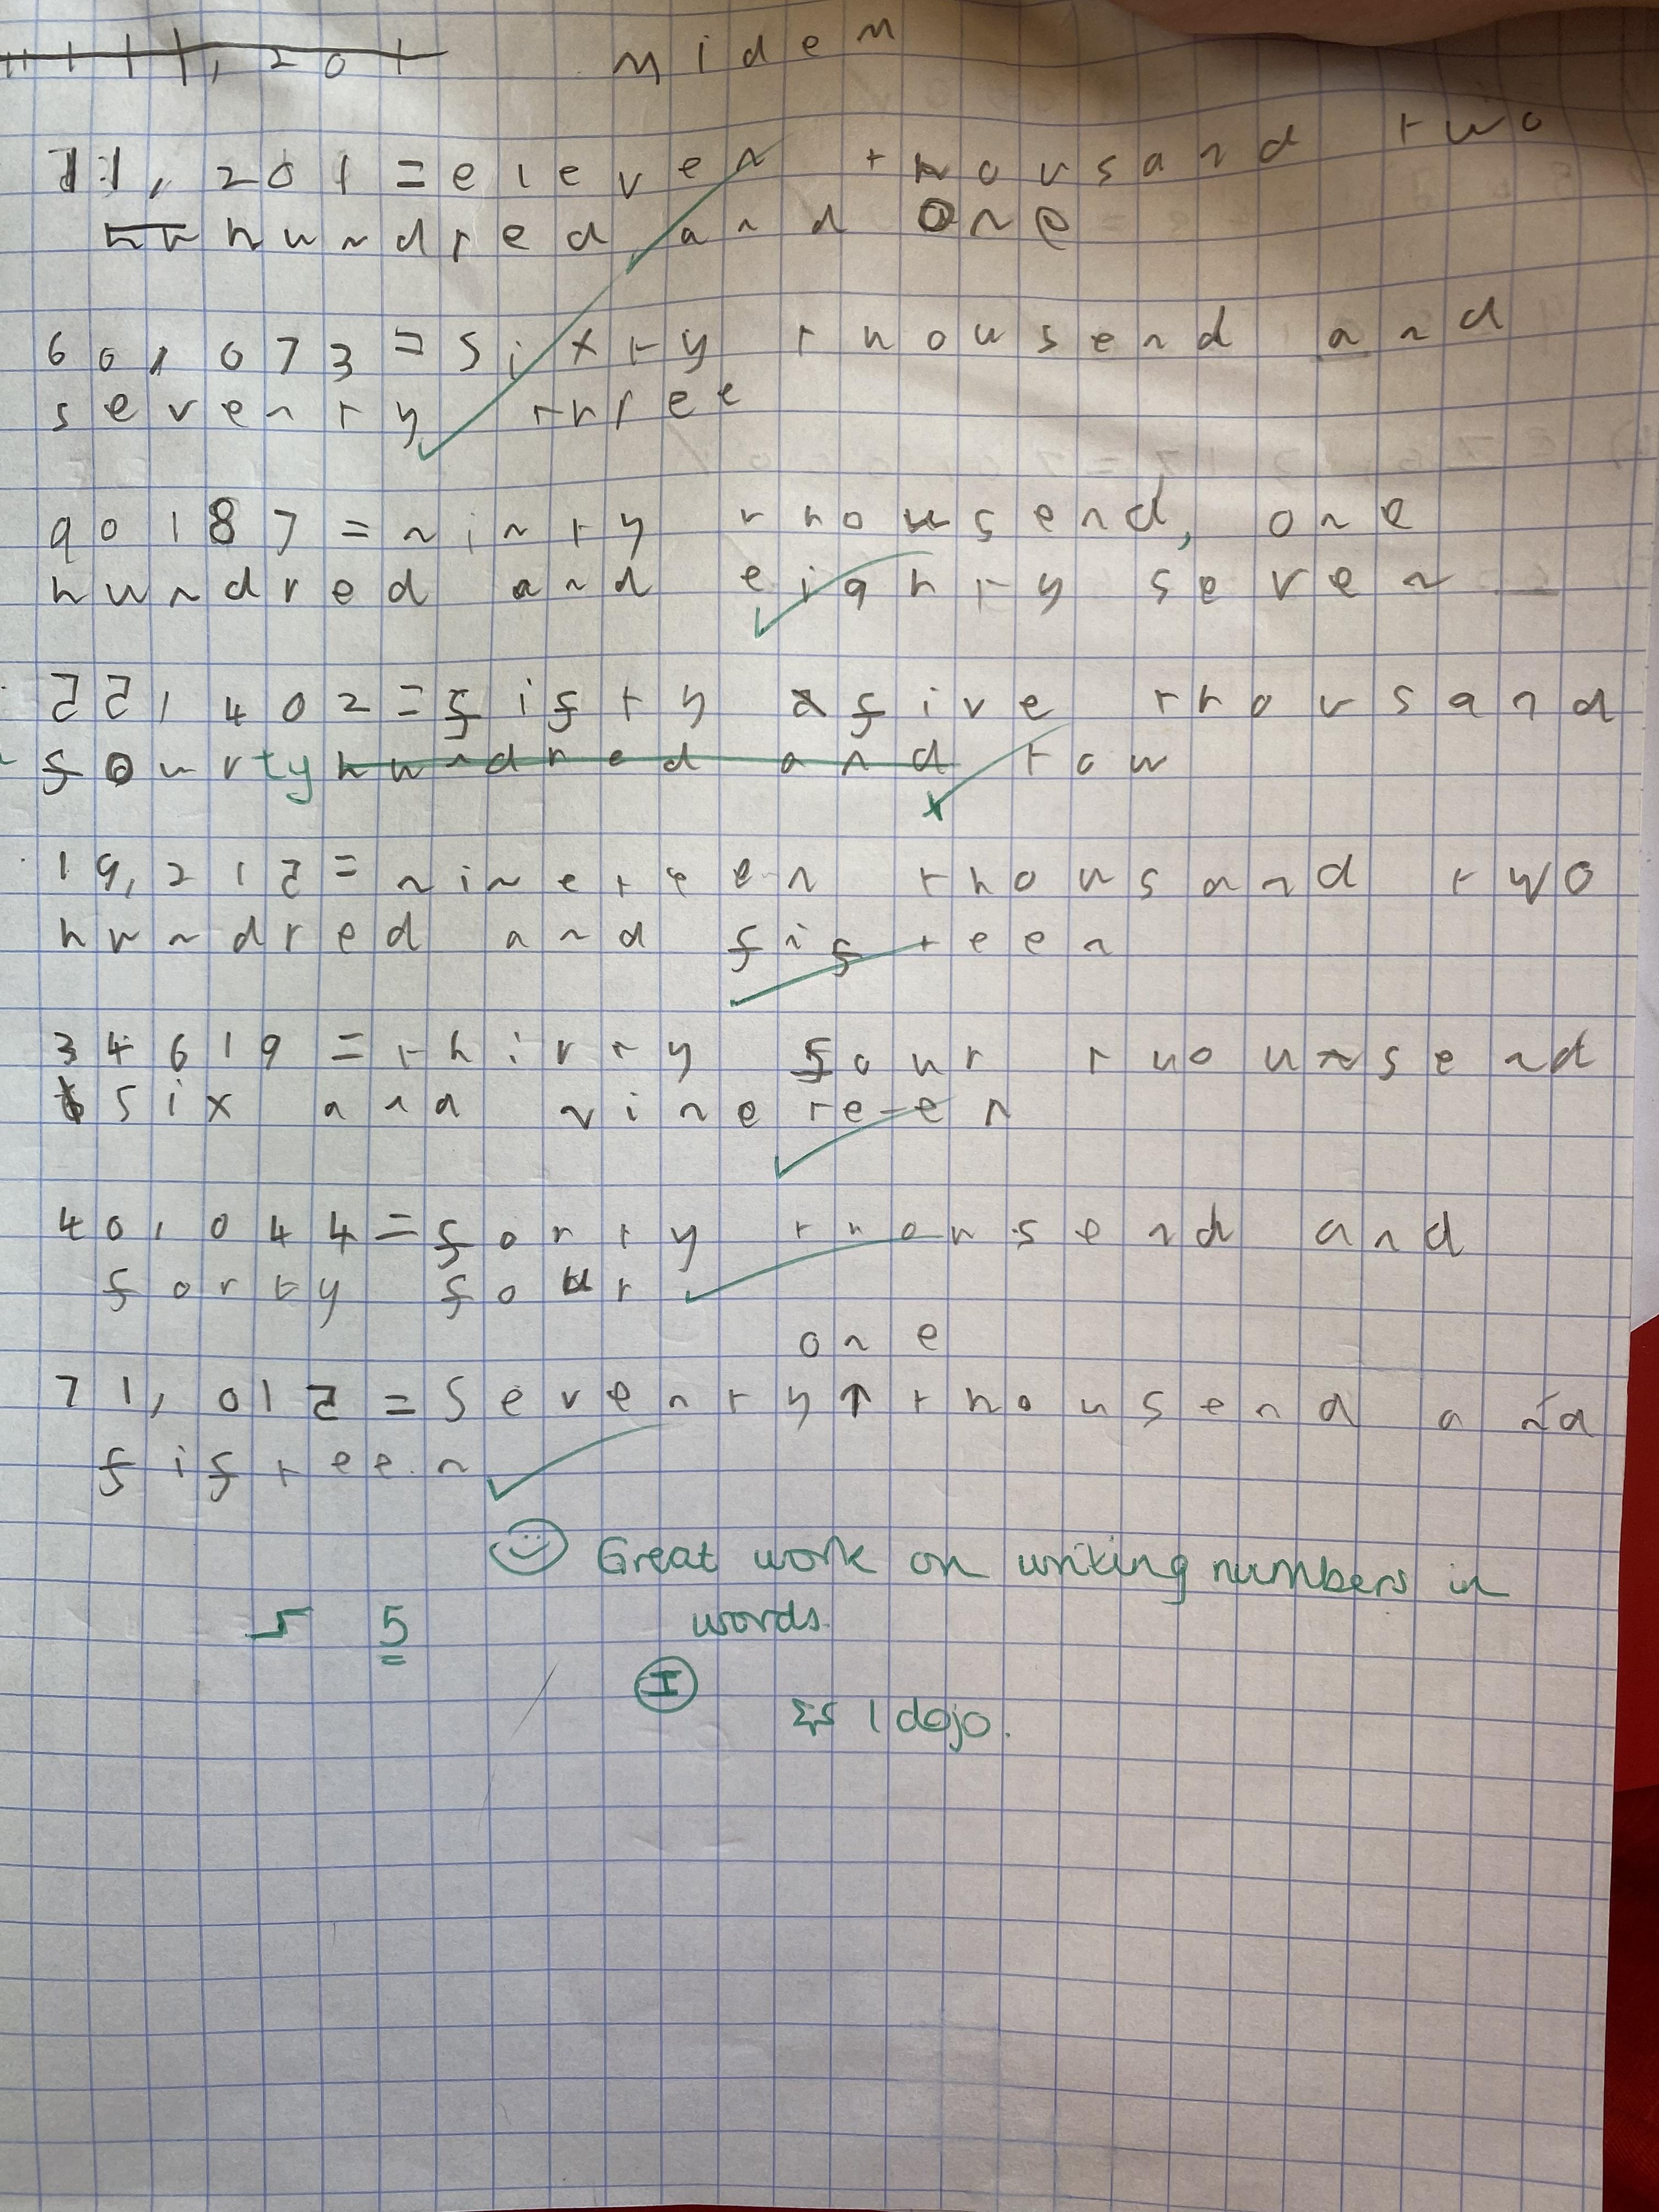 , 201 miden
11, 201 = eleven thousand two
hundred and one
60, 073 = sixty thousend and
seventy three
90187 = ninty thousend, one
hundred and eighty seven
55, 402 = fifty five thousand
fourty hundred and tow
19, 215 = nineteen thousand two
hundred and fifteen
34619 = thirty four thounsend
six and nineteen
40, 044 = forty thousend and
forty four
one
71, 015 = Seventy ↑ thousend and
fifteen
Great work on writing numbers in
5 words.
I
1 dojo.